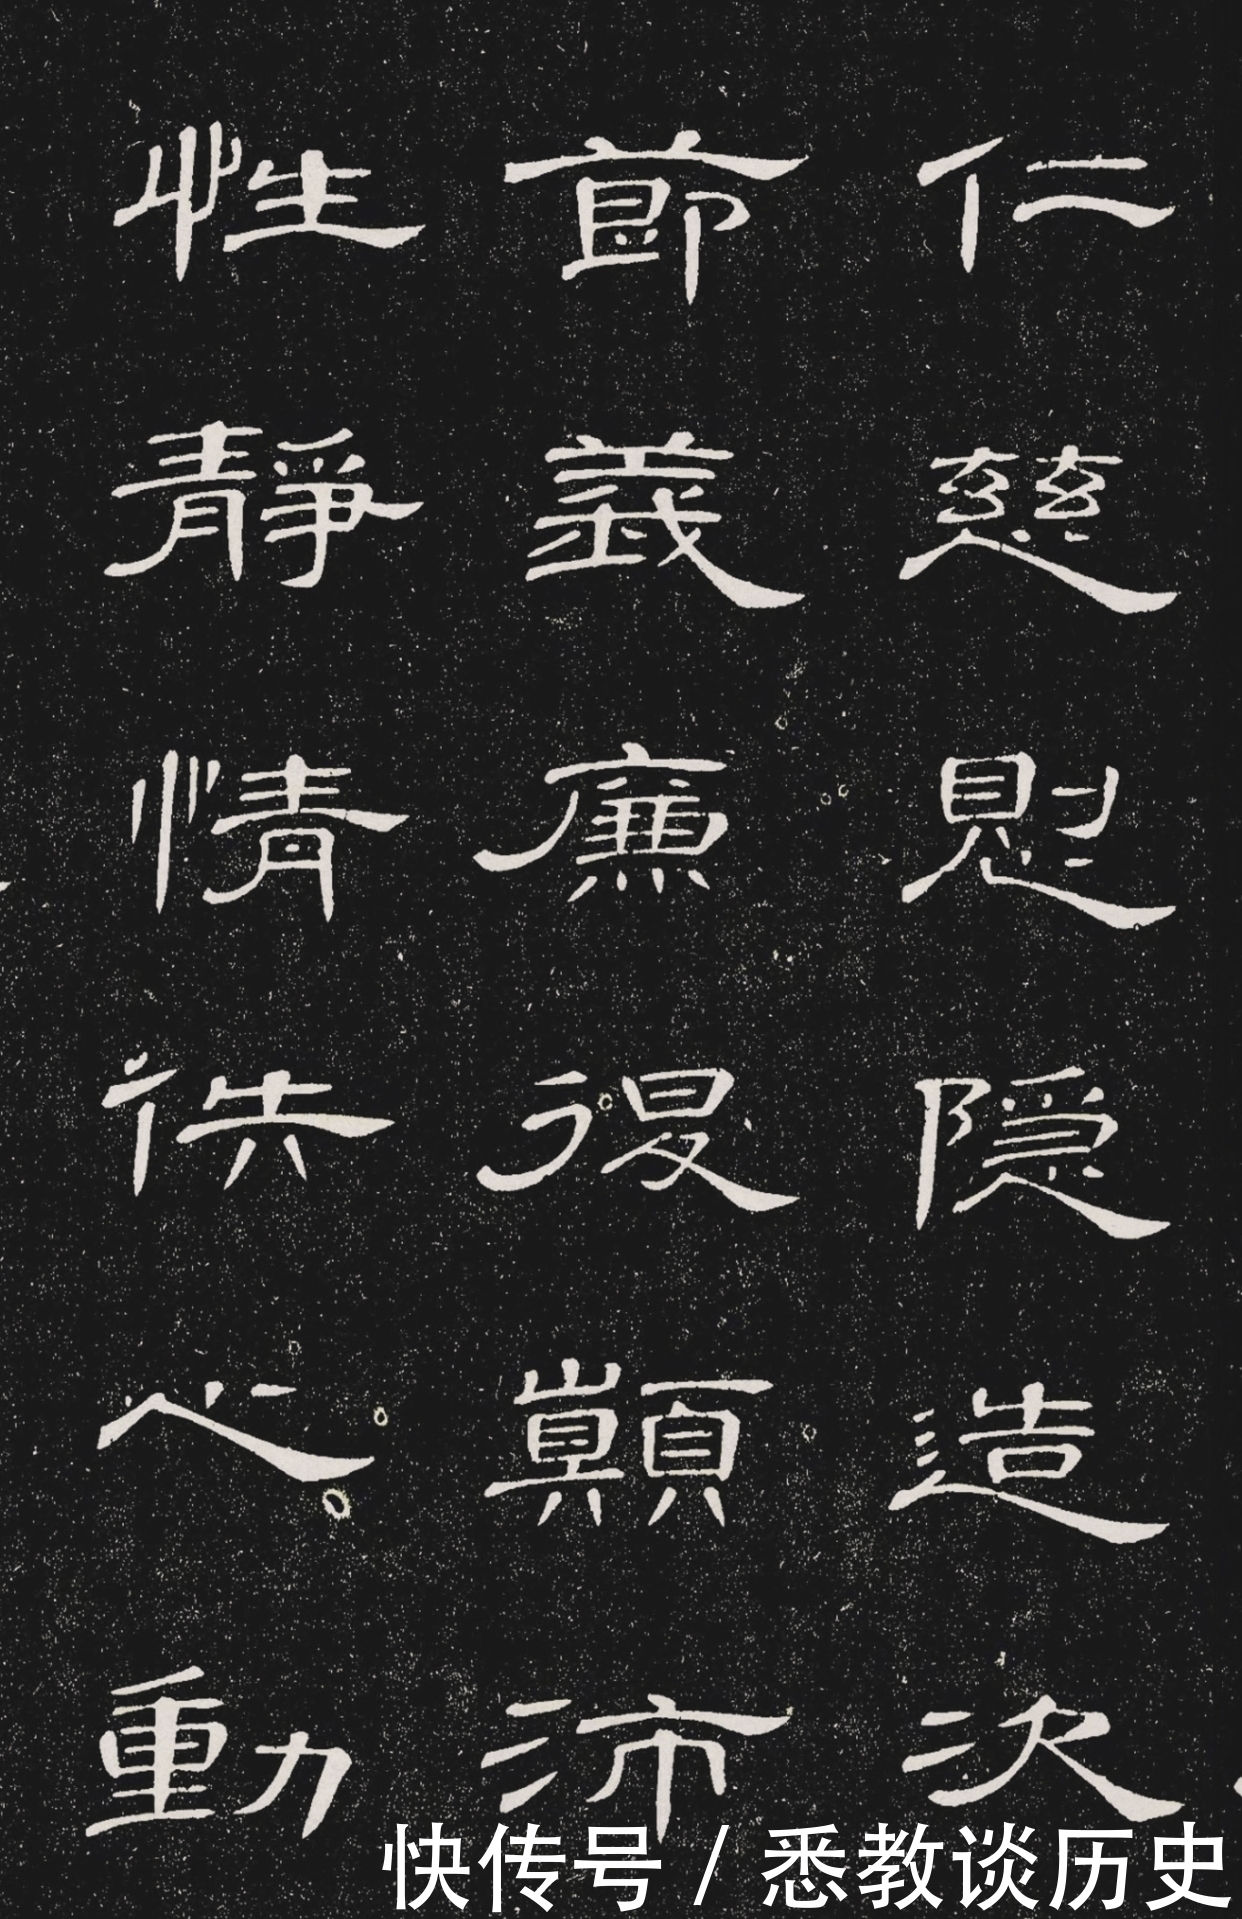 仁慈惻隐造次
莭義廉退顛沛
性靜情佚心動
快传号 / 悉教谈历史